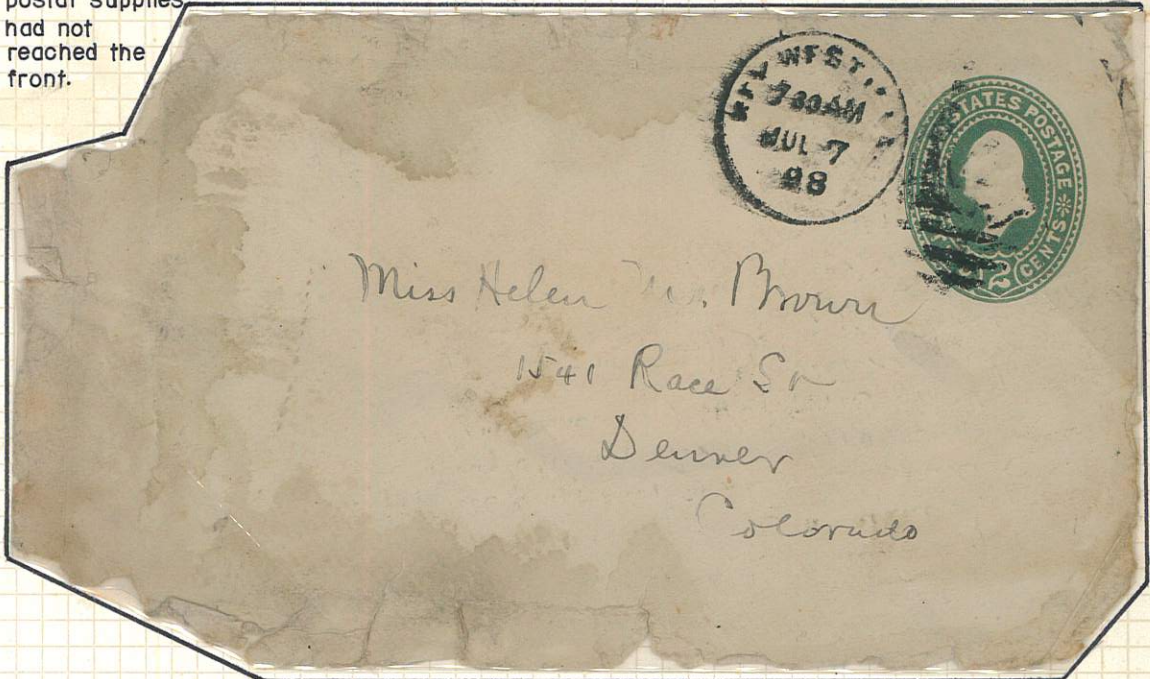 postal supplies
had not
reached the
front.
KEY WEST,
730AM
JUL 7
98
STATES POSTAGE
2 CENTS
Miss Helen Brown
1541 Race St
Denver
Colorado